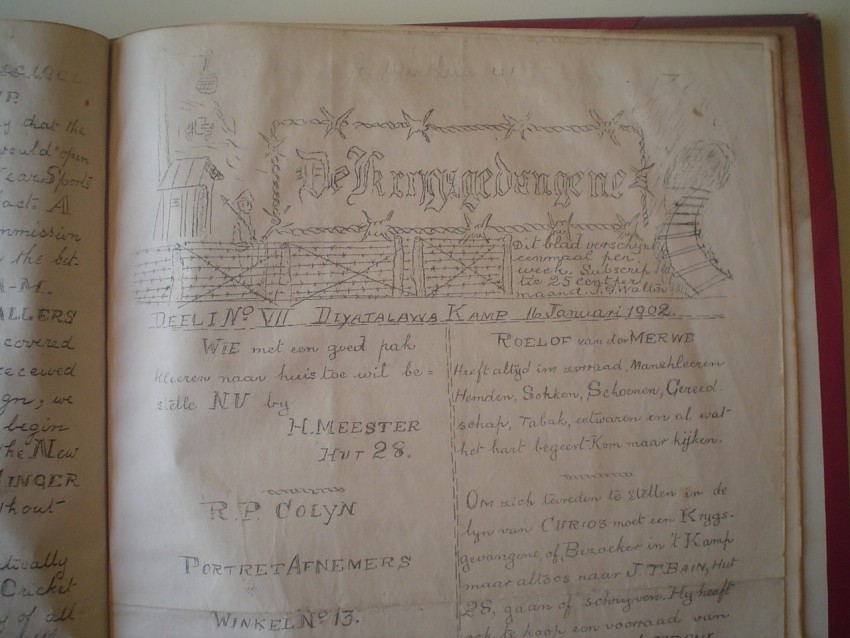 y that the
would open
Year Sports
fact. A
mmission
the bet-
A-M.
ALLERS
covered
received
gn, we
begin
the New
INGER
thout
tically
Cricket
y of all
De Krijgsgevangene
Dit blad verschijnt
eenmaal per
week. Subscrip
tie 25 cent per
maand.
DEEL I No. VII DIYATALAWA KAMP 16 Januari 1902.
WIE met een goed pak
kleeren naar huis toe wil be=
stelle NU by
H. MEESTER
HUT 28.
R.P. COLYN
PORTRET AFNEMERS
WINKEL No. 13.
ROELOF van der MERWE
Heeft altyd in voorraad, Manskleeren
Hemden, Sokken, Schoenen, Gereed-
schap, Tabak, eetwaren en al wat-
het hart begeert-Kom maar kijken.
OM zich tevreden te stellen in de
lyn van CURIOS moet een Krygs-
gevangene, of Bezoeker in 't Kamp
maar altoos naar J.T BAIN, Hut
28, gaan of schryven. Hy heeft
ook te koop een voorraad van